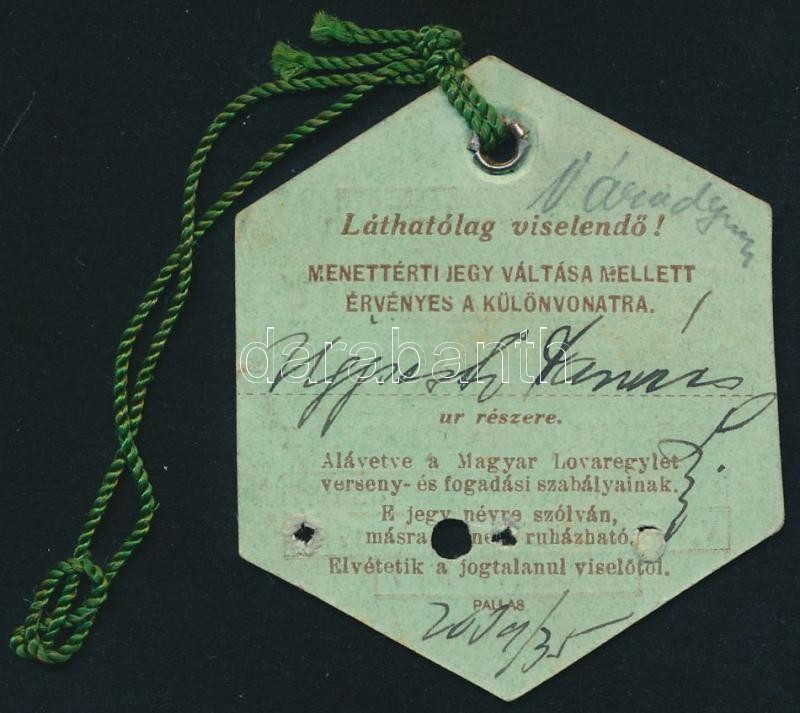 Láthatólag viselendő!
MENETTÉRTI JEGY VÁLTÁSA MELLETT
ÉRVÉNYES A KÜLÖNVONATRA.
darabanth
ur részere.
Alávetve a Magyar Lovaregylet
verseny- és fogadási szabályainak.
E jegy névre szólván,
másra ruházható.
Elvétetik a jogtalanul viselőtől.
PALLAS